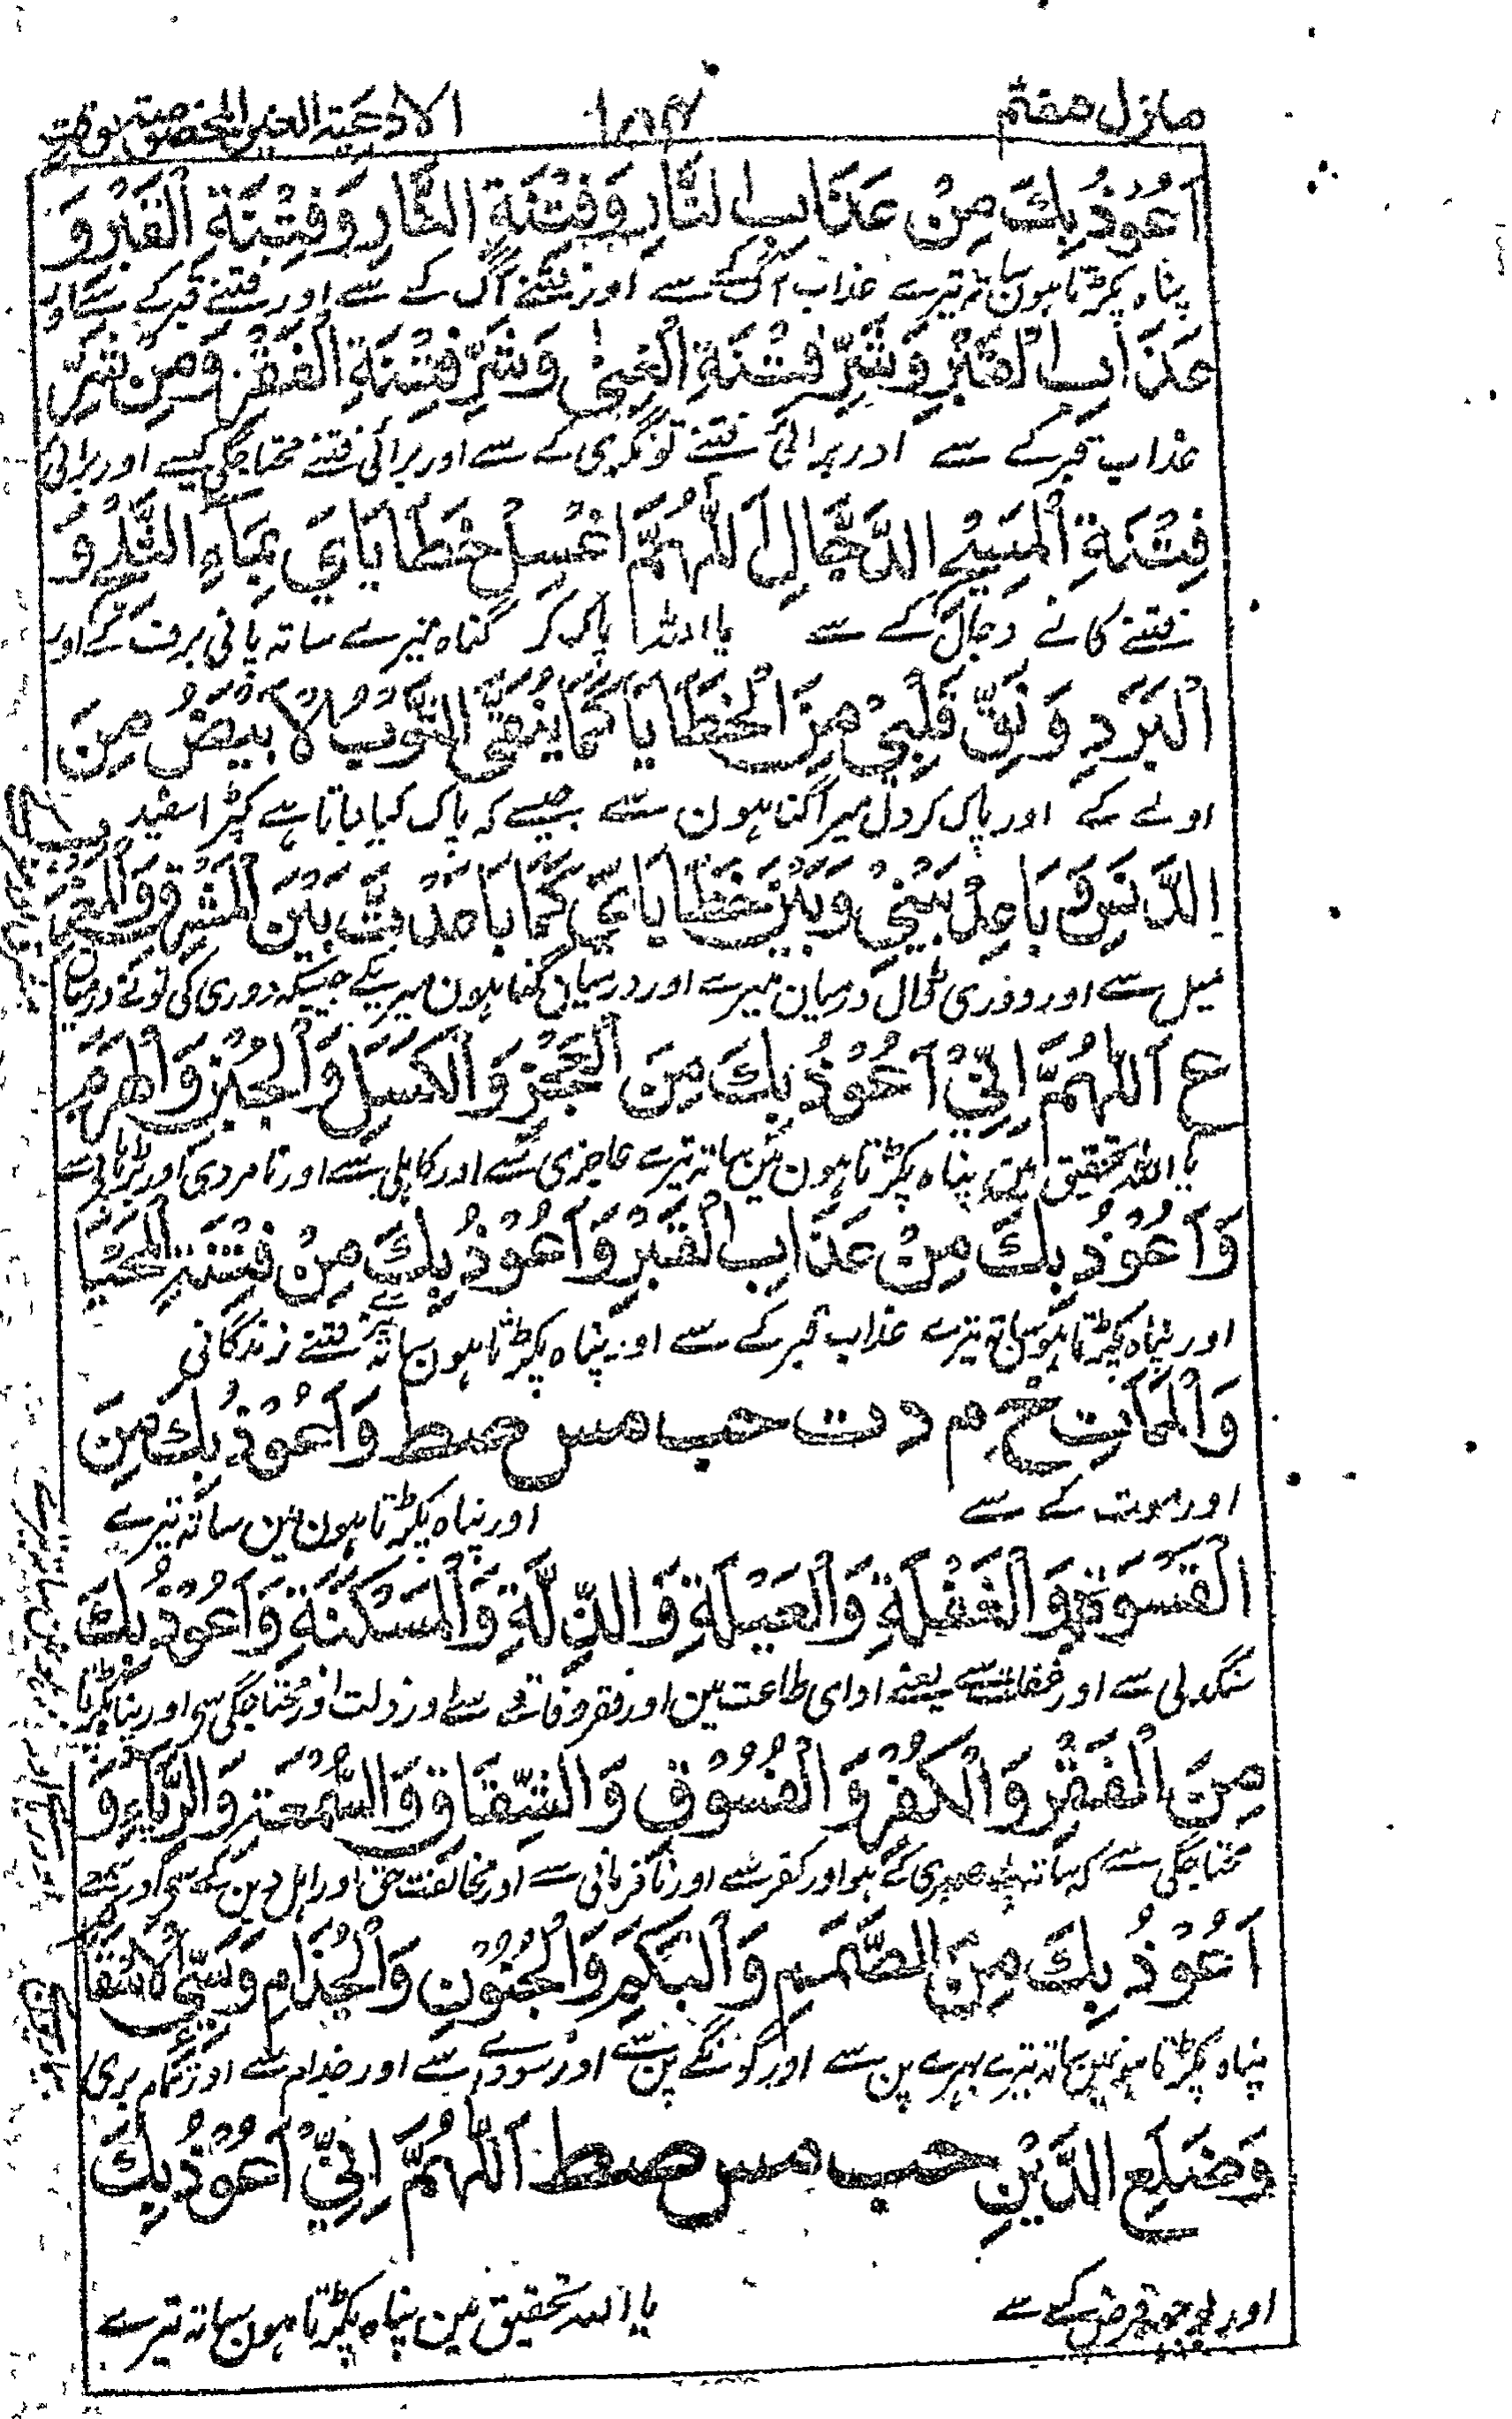 منزل هفتم
الادعية الغير المخصوصة بوقت
اَعُوْذُ بِكَ مِنْ عَذَابِ النَّارِ وَفِتْنَةِ النَّارِ وَفِتْنَةِ الْقَبْرِ وَ
پناہ پکڑتا ہون ساتہ تیرے عذاب آگ کے سے اور فتنے آگ کے سے اور فتنے قبر کے سے اور
عَذَابِ الْقَبْرِ وَشَرِّ فِتْنَةِ الْغِنٰى وَشَرِّ فِتْنَةِ الْفَقْرِ وَمِنْ شَرِّ
عذاب قبر کے سے اور برائی فتنے تونگری کے سے اور برائی فتنے محتاجگی کیسے اور برائی
فِتْنَةِ الْمَسِيْحِ الدَّجَّالِ اَللّٰهُمَّ اغْسِلْ خَطَايَايَ بِمَآءِ الثَّلْجِ وَ
فتنے کانے دجال کے سے یا اللہ پاک کر گناہ میرے ساتہ پانی برف کے اور
الْبَرَدِ وَنَقِّ قَلْبِيْ مِنَ الْخَطَايَا كَمَا يُنَقَّى الثَّوْبُ الْاَبْيَضُ مِنَ
اولے کے اور پاک کر دل میرا گناہون سے جیسے کہ پاک کیا جاتا ہے کپڑا سفید
الدَّنَسِ وَبَاعِدْ بَيْنِيْ وَبَيْنَ خَطَايَايَ كَمَا بَاعَدْتَّ بَيْنَ الْمَشْرِقِ وَالْمَغْرِبِ
میل سے اور دوری ڈال درمیان میرے اور درمیان گناہون میریکے جیسیکہ دوری کی تونے درمیان
ع اَللّٰهُمَّ اِنِّيْ اَعُوْذُ بِكَ مِنَ الْعَجْزِ وَالْكَسَلِ وَالْجُبْنِ وَالْهَرَمِ
یا اللہ تحقیق مین پناہ پکڑتا ہون مین ساتہ تیرے عاجزی سے اور کاہلی سے اور نامردی اور بڑہاپے سے
وَاَعُوْذُ بِكَ مِنْ عَذَابِ الْقَبْرِ وَاَعُوْذُ بِكَ مِنْ فِتْنَةِ الْمَحْيَا
اور پناہ پکڑتا ہون ساتہ تیرے عذاب قبر کے سے اور پناہ پکڑتا ہون ساتہ تیرے فتنے زندگانی
وَالْمَمَاتِ خ م د ت حب مس صط وَاَعُوْذُ بِكَ مِنَ
اور موت کے سے اور پناہ پکڑتا ہون مین ساتہ تیرے
الْقَسْوَةِ وَالْغَفْلَةِ وَالْعَيْلَةِ وَالذِّلَّةِ وَالْمَسْكَنَةِ وَاَعُوْذُ بِكَ
سنگدلی سے اور غفلت سے یعنے ادای طاعت مین اور فقر و فاقے سے اور ذلت اور محتاجگی سی اور پناہ پکڑتا
مِنَ الْفَقْرِ وَالْكُفْرِ وَالْفُسُوْقِ وَالشِّقَاقِ وَالسُّمْعَةِ وَالرِّيَآءِ وَ
محتاجگی سے کہ ساتہ بے صبری کے ہو اور کفر سے اور نافرمانی سے اور مخالفت حق اور اہل دین کے سی اور
اَعُوْذُ بِكَ مِنَ الصَّمَمِ وَالْبَكَمِ وَالْجُنُوْنِ وَالْجُذَامِ وَسَيِّئِ الْاَسْقَامِ
پناہ پکڑتا ہون مین ساتہ تیرے بہرے پن سے اور گونگے پن سے اور سودے سے اور جذام سے اور تمام بری
وَضَلَعِ الدَّيْنِ حب مس صط اَللّٰهُمَّ اِنِّيْ اَعُوْذُ بِكَ
اور بوجھ قرض کے سے یا اللہ تحقیق مین پناہ پکڑتا ہون ساتہ تیرے